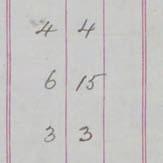 4 4
6 15
3 3